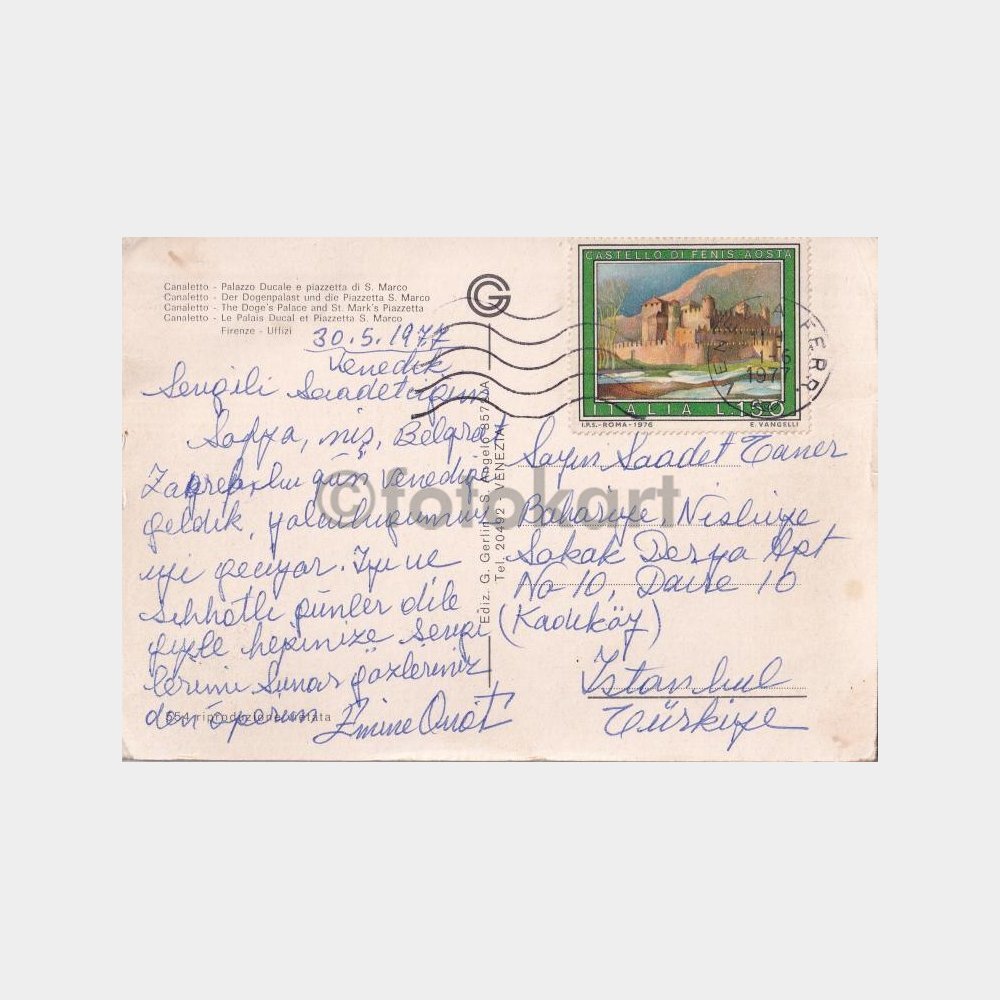 Canaletto - Palazzo Ducale e piazzetta di S. Marco
Canaletto - Der Dogenpalast und die Piazzetta S. Marco
Canaletto - The Doge's Palace and St. Mark's Piazzetta
Canaletto - Le Palais Ducal et Piazzetta S. Marco
Firenze - Uffizi
30.5.1977
Venedik
Sevgili Saadetciğim
Sofya, niş, Belgrat
Zagrep, bu gün Venediğe
geldik, yolculuğumuz
iyi geçiyor. İyi ve
sıhhatli günler dile
ğiyle hepinize sevgi
lerimi sunar gözleriniz
den öperim Emine
554 riproduzione vietata
G
Ediz. G. Gerlin - S. Angelo
Tel. 20492 VENEZIA
CASTELLO DI FENIS-AOSTA
ITALIA L.150
I.P.S.-ROMA-1976 E. VANGELLI
FERR.
1977
Sayın Saadet Taner
Bahariye Nisbiye
Sokak Derya Apt
No 10, Daire 10
(Kadıköy)
İstanbul
Türkiye
©fotokart